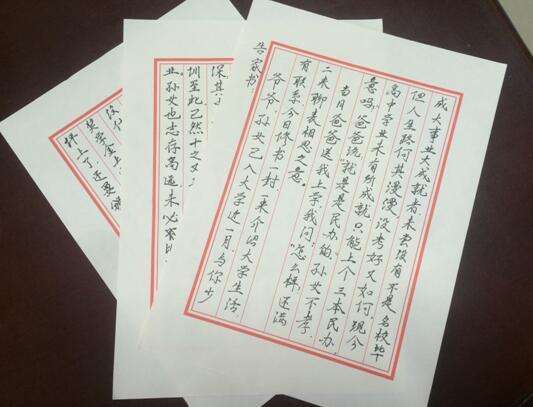 告家书
爷爷，孙女已入大学近一月，与你少
有联系，今日修书一封，一来介绍大学生活
二来聊表相思之意。
当日爸爸送我上学，我问：“怎么样，还满
意吗，爸爸说“就是是民办的，孙女不孝，
高中学业未有所成就，只能上个三本民办，
但人生路何其漫漫，没考好又如何，现今
成大事业大成就者未尝没有不是名校毕
业。孙女也志存高远，未必
已然十之又
深其
上了还要
奖学金上